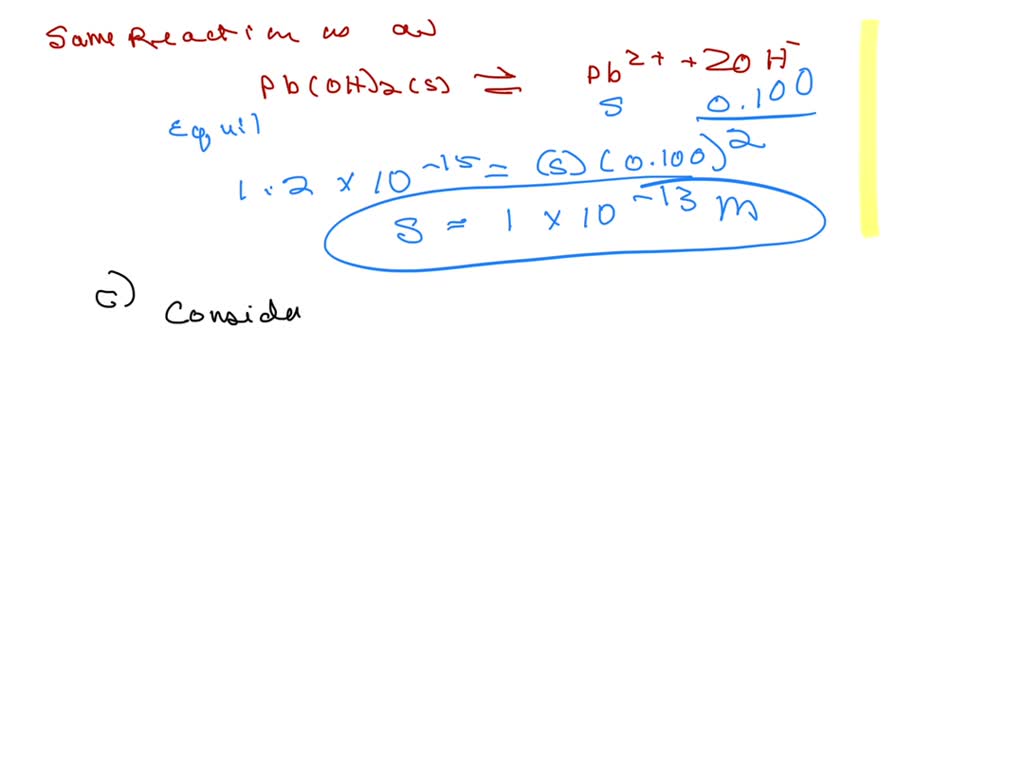 Same Reaction as a)
Pb(OH)2(s) ⇌ Pb2+ + 2OH-
Equil S 0.100
1.2 x 10-15 = (s)(0.100)2
S = 1 x 10-13 m
c) Conside